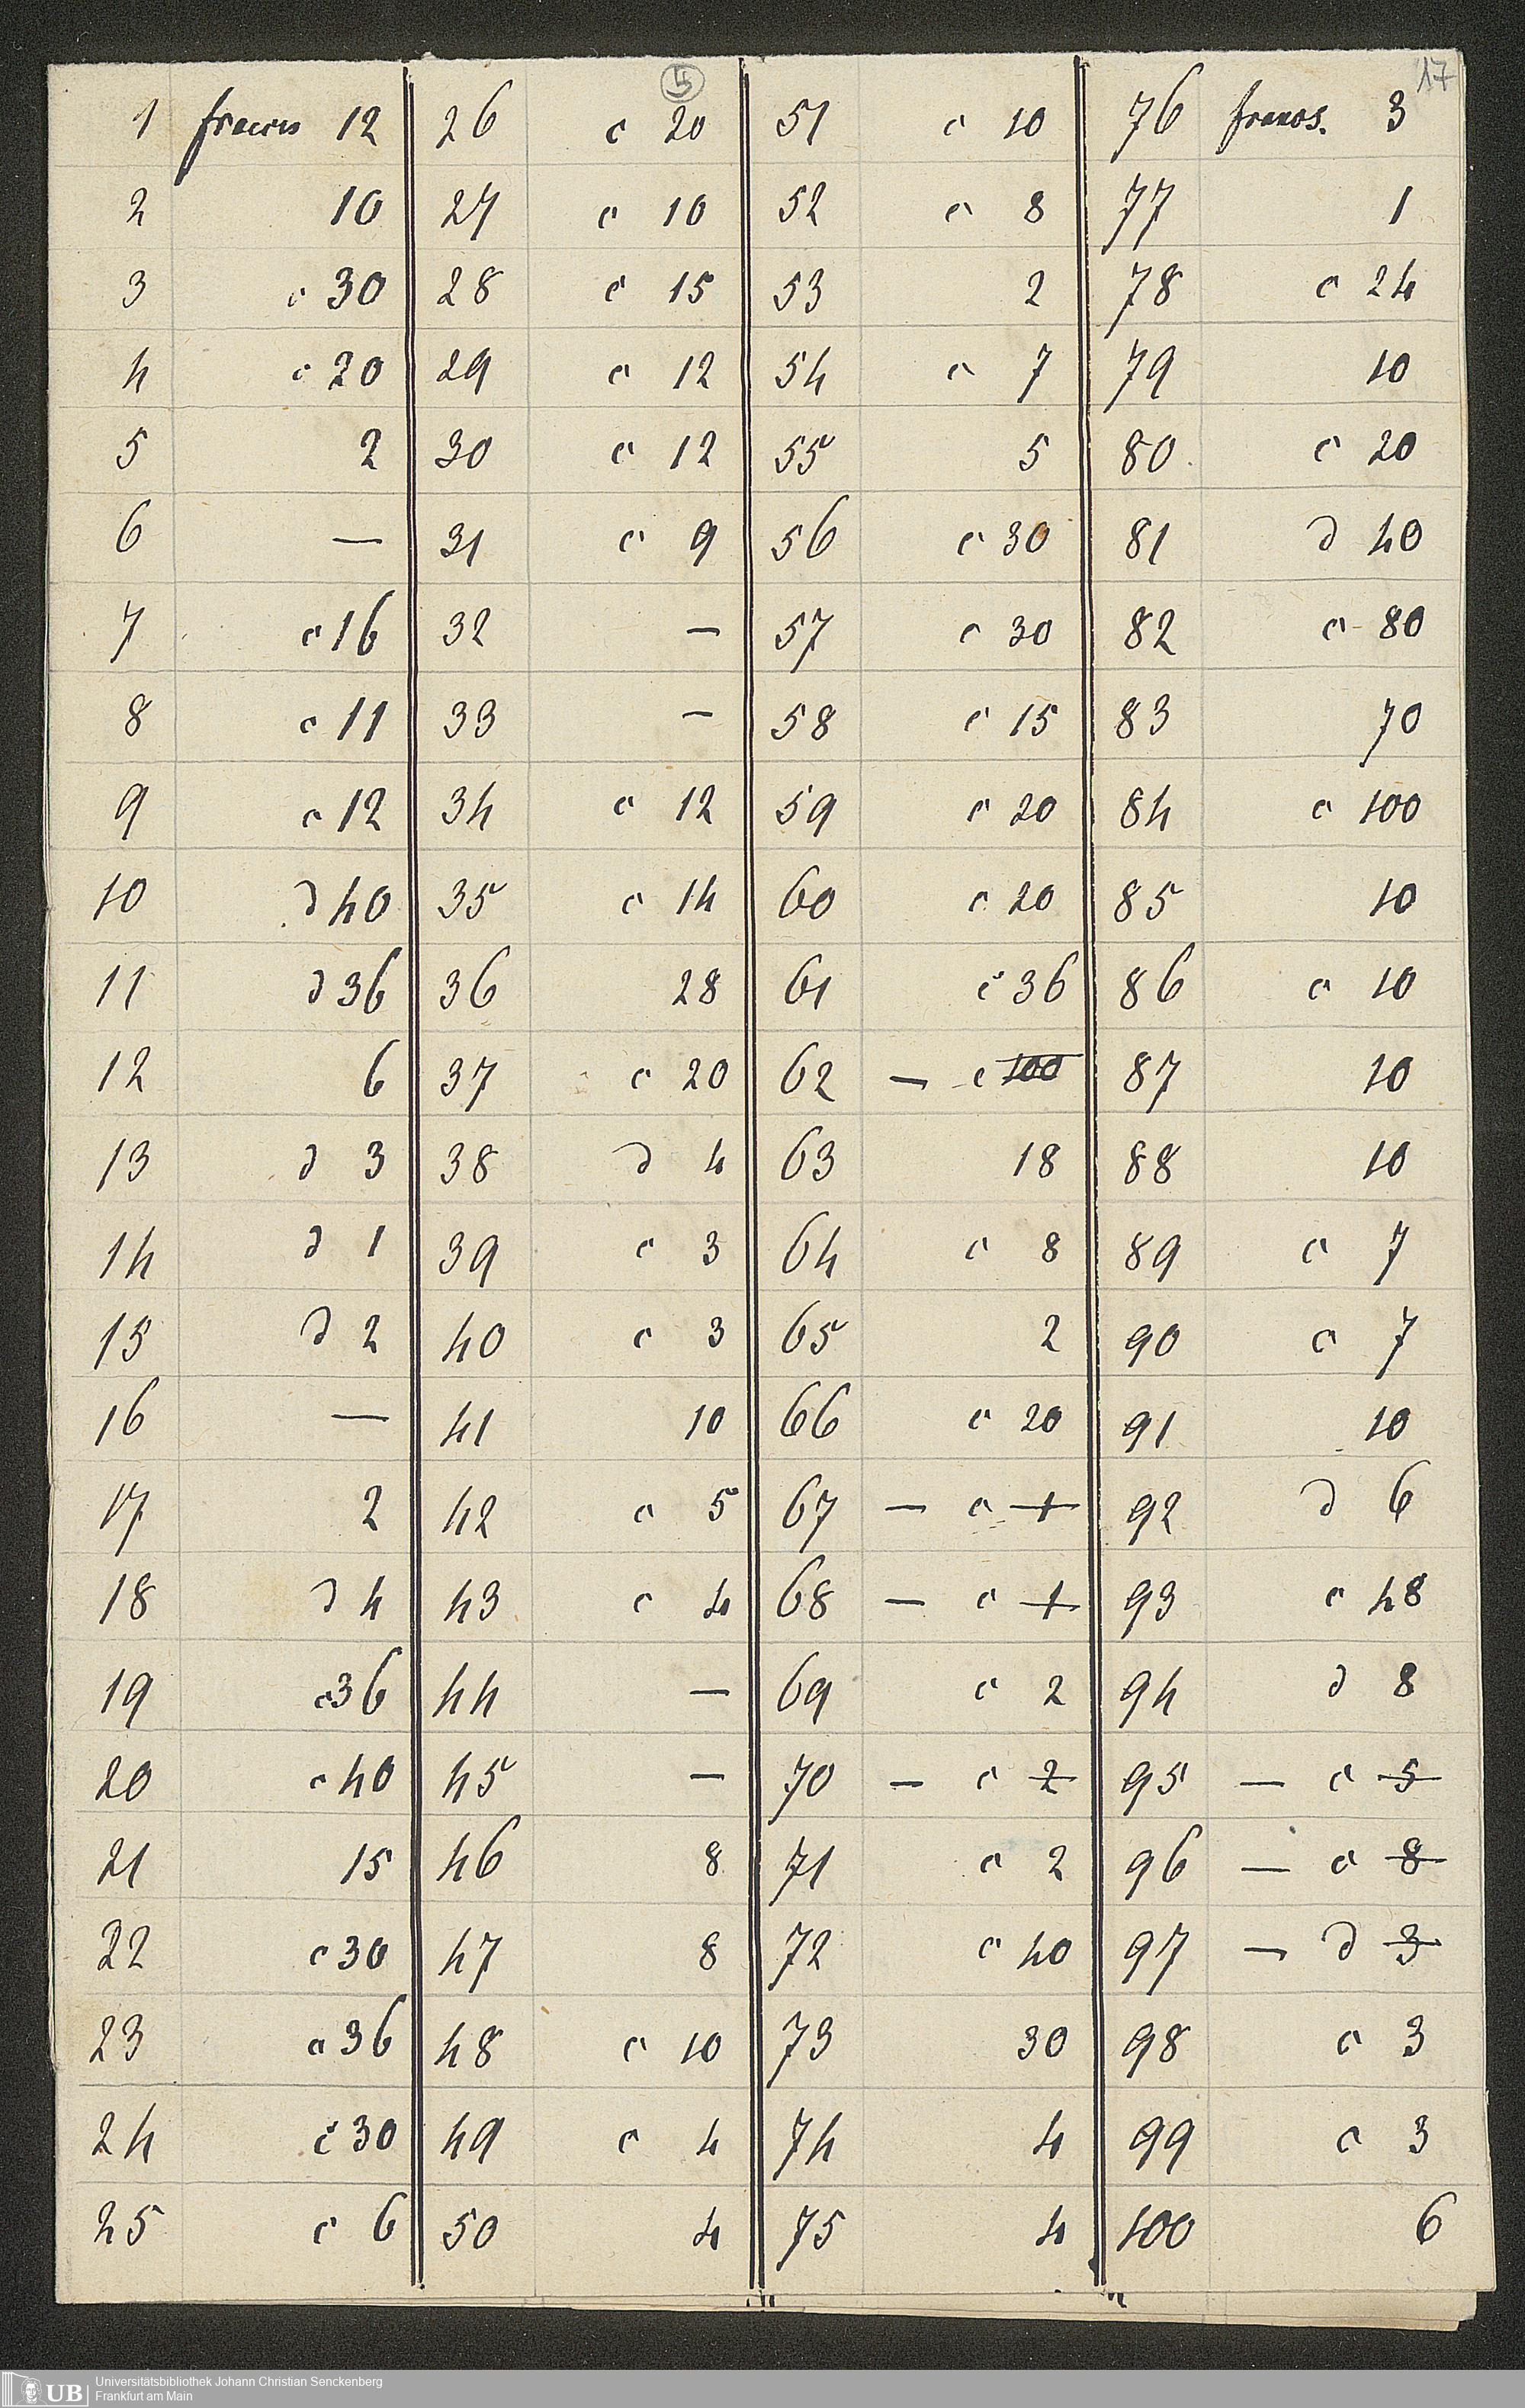 5 17
1 francs 12 26 c 20 51 c 10 76 francs. 3
2 10 27 c 10 52 c 8 77 1
3 c 30 28 c 15 53 2 78 c 24
4 c 20 29 c 12 54 c 7 79 10
5 2 30 c 12 55 5 80 c 20
6 — 31 c 9 56 c 30 81 d 40
7 c 16 32 — 57 c 30 82 c 80
8 c 11 33 — 58 c 15 83 70
9 c 12 34 c 12 59 c 20 84 c 100
10 d 40 35 c 14 60 c 20 85 10
11 d 36 36 28 61 c 36 86 c 10
12 6 37 c 20 62 — c 100 87 10
13 d 3 38 d 4 63 18 88 10
14 d 1 39 c 3 64 c 8 89 c 7
15 d 2 40 c 3 65 2 90 c 7
16 — 41 10 66 c 20 91 10
17 2 42 c 5 67 — c 1 92 d 6
18 d 4 43 c 4 68 — c 1 93 c 48
19 c 36 44 — 69 c 2 94 d 8
20 c 40 45 — 70 — c 2 95 — c 5
21 15 46 8 71 c 2 96 — c 8
22 c 30 47 8 72 c 40 97 — d 3
23 c 36 48 c 10 73 30 98 c 3
24 c 30 49 c 4 74 4 99 c 3
25 c 6 50 4 75 4 100 6
UB Universitätsbibliothek Johann Christian Senckenberg
Frankfurt am Main